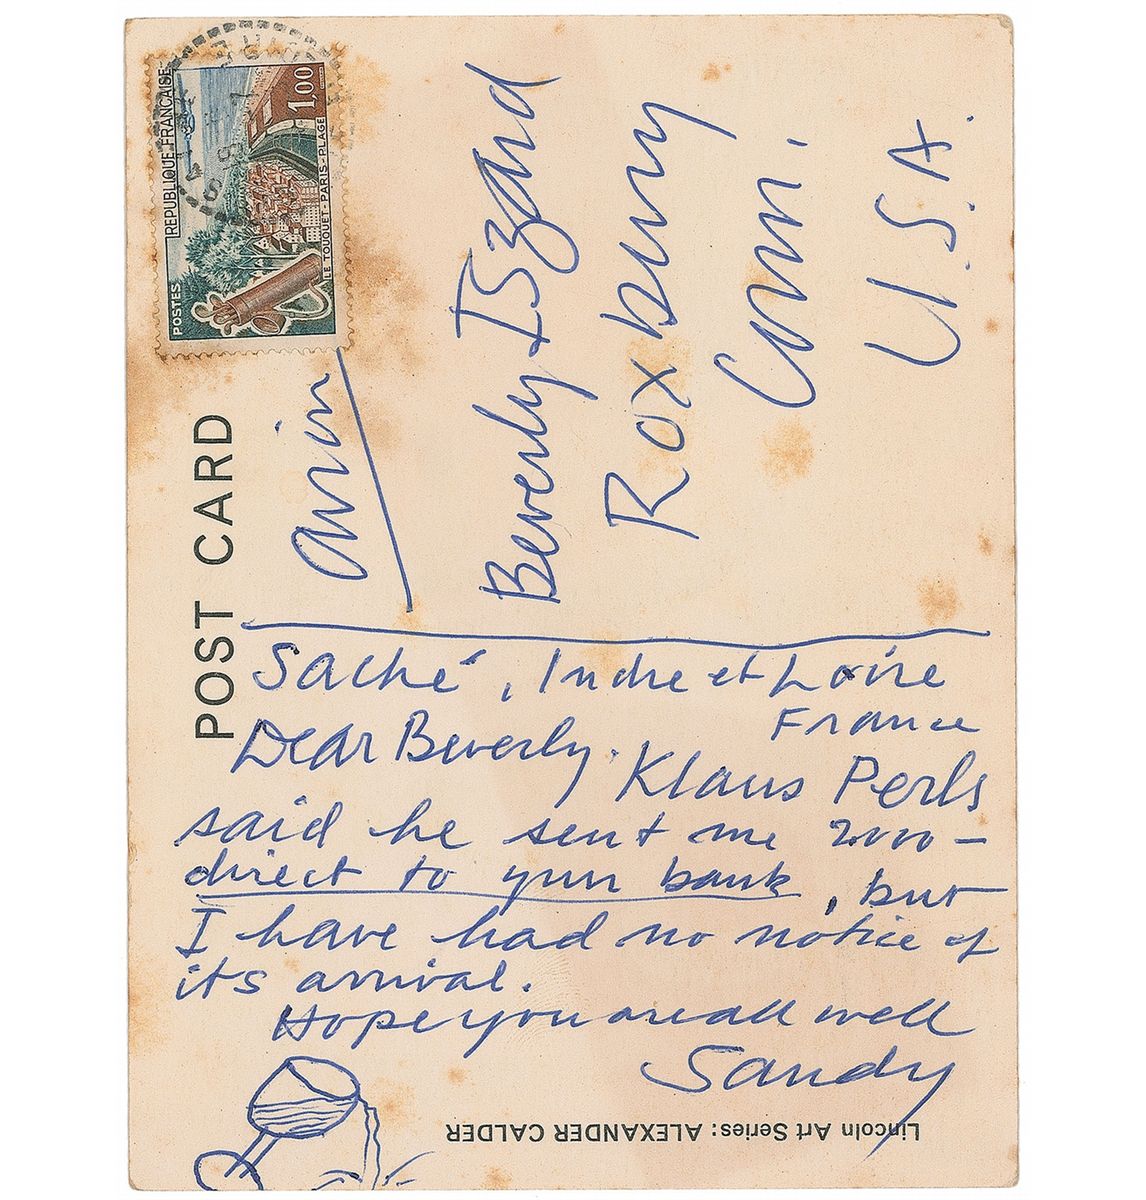 REPUBLIQUE FRANÇAISE
1,00
POSTES
LE TOUQUET-PARIS-PLAGE
POST CARD
avion
Beverly Iszard
Roxbury
Conn.
U.S.A.
Saché, Indre et Loire
France
Dear Beverly. Klaus Perls
said he sent me 2000 —
direct to your bank, but
I have had no notice of
its arrival.
Hope you are all well
Sandy
Lincoln Art Series: ALEXANDER CALDER